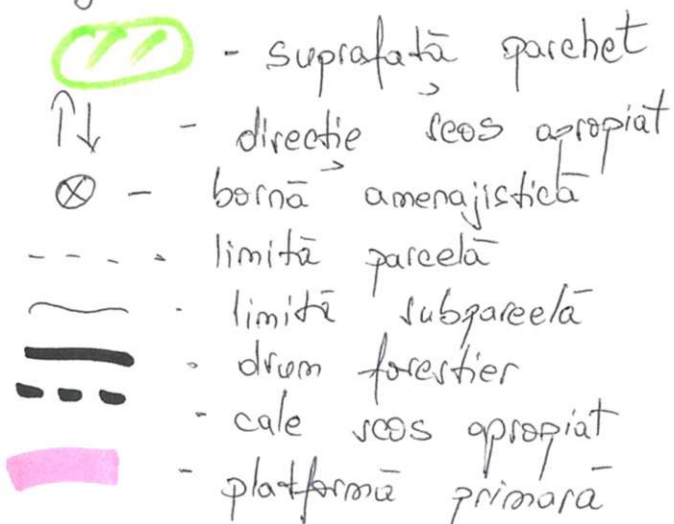 - suprafață parchet
- direcție scos apropiat
- bornă amenajistică
- limită parcelă
- limită subparcelă
- drum forestier
- cale scos apropiat
- platformă primară